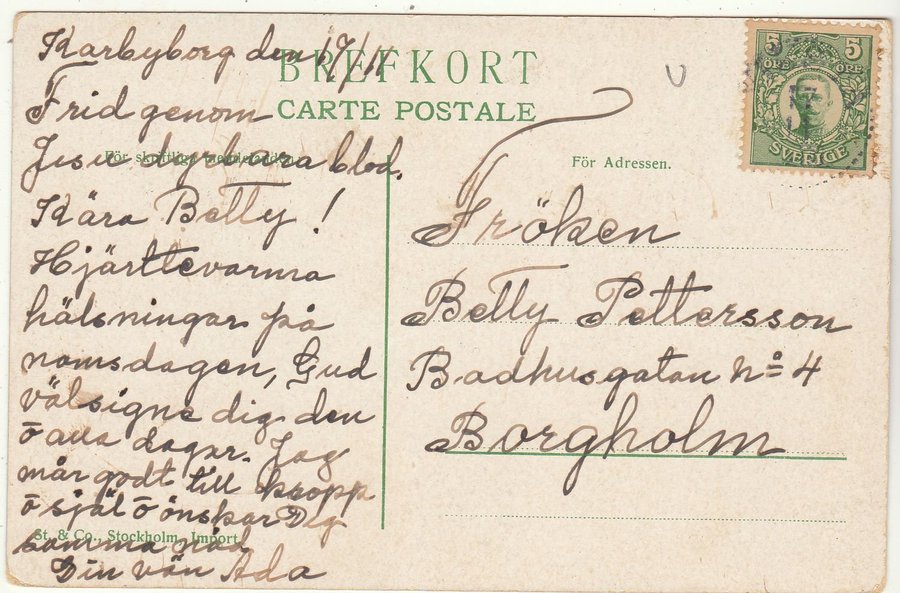 Karbyborg den 17/11
BREFKORT
CARTE POSTALE
Frid genom
Jesu dyrbara blod.
För skriftliga meddelanden.
Kära Betty!
Hjärttevarma
hälsningar på
namsdagen, Gud
välsigne dig den
ō ava dagar. Jag
mår godt till kropp
ō själ ō önskar Dig
samma nåd.
Din vän Ada
St. & Co., Stockholm, Import.
5 5
ÖRE ÖRE
SVERIGE
För Adressen.
Fröken
Betty Pettersson
Badhusgatan No 4
Borgholm